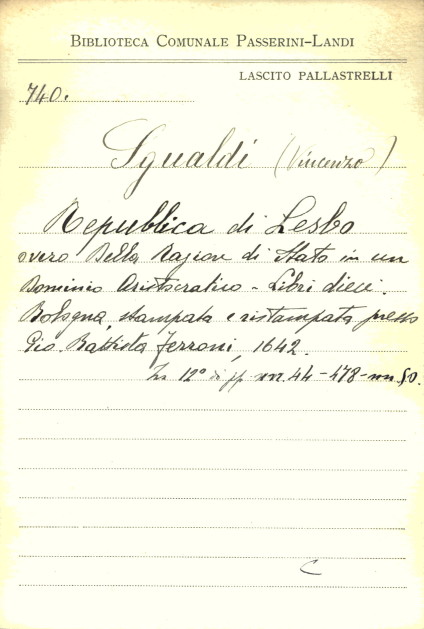 BIBLIOTECA COMUNALE PASSERINI-LANDI
LASCITO PALLASTRELLI
740.
Sgualdi (Vincenzo)
Republica di Lesbo
overo Della Ragione di Stato in un
Dominio Aristocratico - Libri dieci.
Bologna, stampata e ristampata presso
Gio. Battista Ferroni, 1642.
In 12° di pp. nn. 44 - 478 - nn. 50.
C